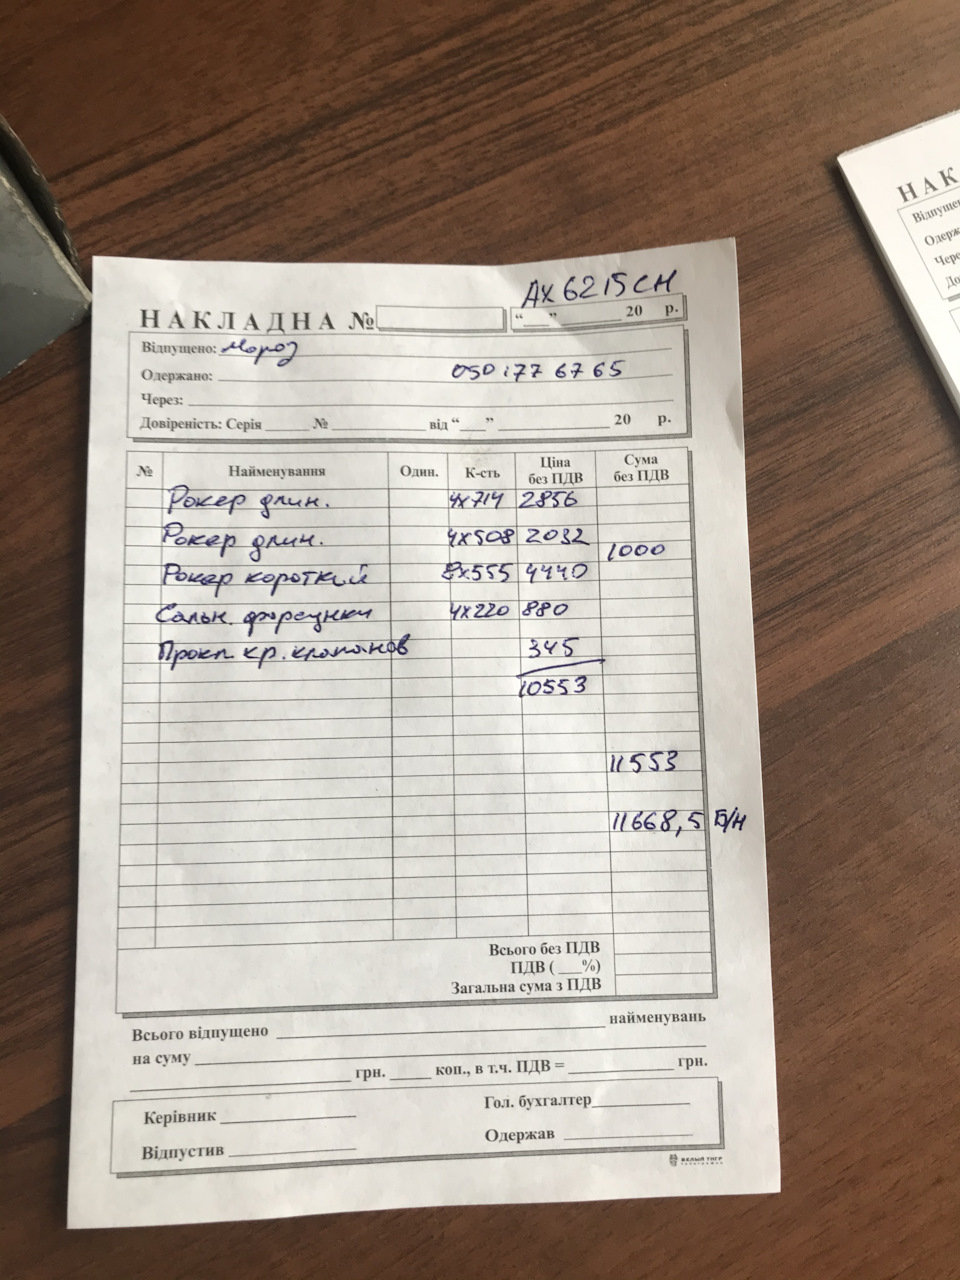 АХ6215СН
НАКЛАДНА №
"___" ________ 20 р.
Відпущено: Мороз
Одержано: 050 177 67 65
Через:
Довіреність: Серія _____ № _________ від "___" ____________ 20 р.
№ Найменування Один. К-сть Ціна без ПДВ Сума без ПДВ
Рокер длин. 4х714 2856
Рокер длин. 4х508 2032
1000
Рокер короткий 8х555 4440
Сальн. форсунки 4х220 880
Прокл. кр. клапанов 345
10553
11553
11668,5 Б/Н
Всього без ПДВ
ПДВ ( ___%)
Загальна сума з ПДВ
Всього відпущено ________ найменувань
на суму
________ грн. _____ коп., в т.ч. ПДВ = ________ грн.
Керівник ________ Гол. бухгалтер ________
Відпустив ________ Одержав ________
БЕЛЫЙ ТИГР
НАК
Відпущен
Одерж
Чере
До